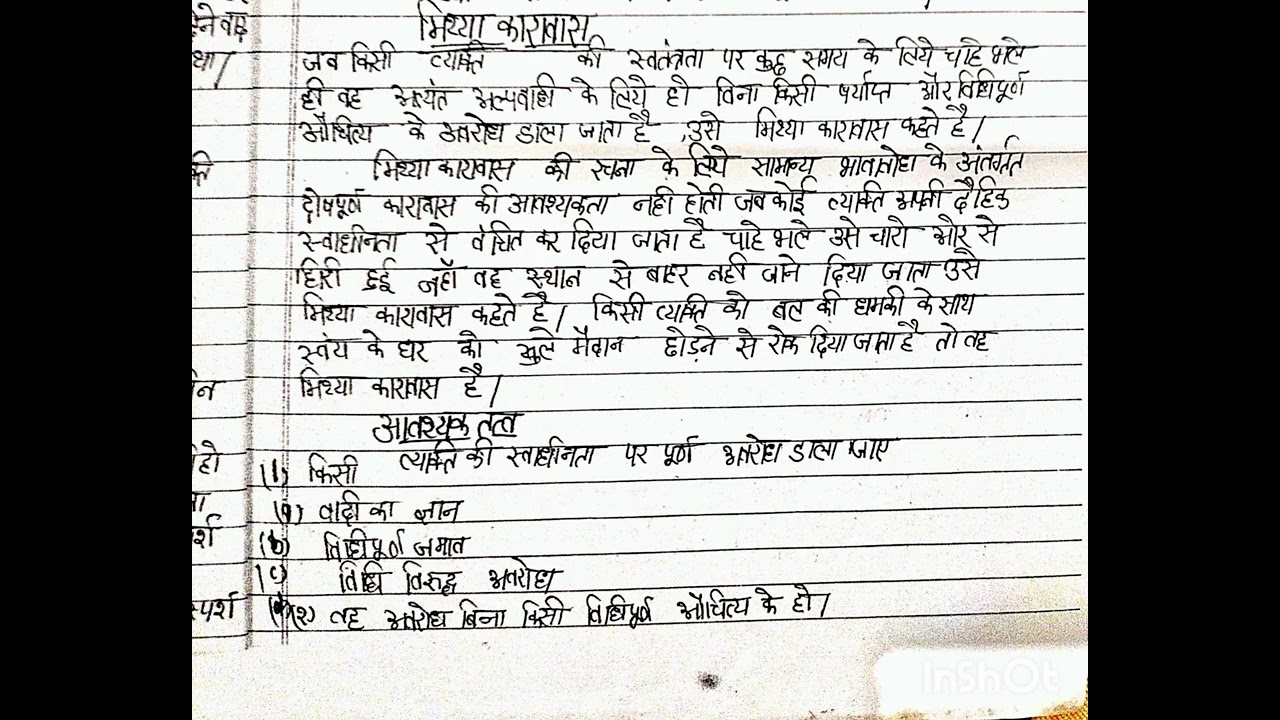 मिथ्या कारावास
जब किसी व्यक्ति की स्वतंत्रता पर कुछ समय के लिये चाहे भले
ही वह अत्यंत अल्पवाही के लिये हो बिना किसी पर्याप्त और विधिपूर्ण
औचित्य के अवरोध डाला जाता है , उसे मिथ्या कारावास कहते है।
मिथ्या कारावास की रचना के लिये सामान्य भाव के अंतर्गत
दोषपूर्ण कारावास की आवश्यकता नही होती जब कोई व्यक्ति अपनी दैहिक
स्वाधीनता से वंचित कर दिया जाता है चाहे भले उसे चारो और से
घिरी हुई जहाँ वह स्थान से बाहर नही जाने दिया जाता उसे
मिथ्या कारावास कहते है। किसी व्यक्ति को बल की धमकी के साथ
स्वंय के घर को खुले मैदान छोड़ने से रोक दिया जाता है तो वह
मिथ्या कारावास है।
आवश्यक तत्व
(1) किसी व्यक्ति की स्वाधीनता पर पूर्ण अवरोध डाला जाए
(a) वादी का ज्ञान
(b) विधिपूर्ण जमाव
(c) विधि विरुद्ध अवरोध
(२) वह अवरोध बिना किसी विधिपूर्ण औचित्य के हो।
स्पर्श
InShOt